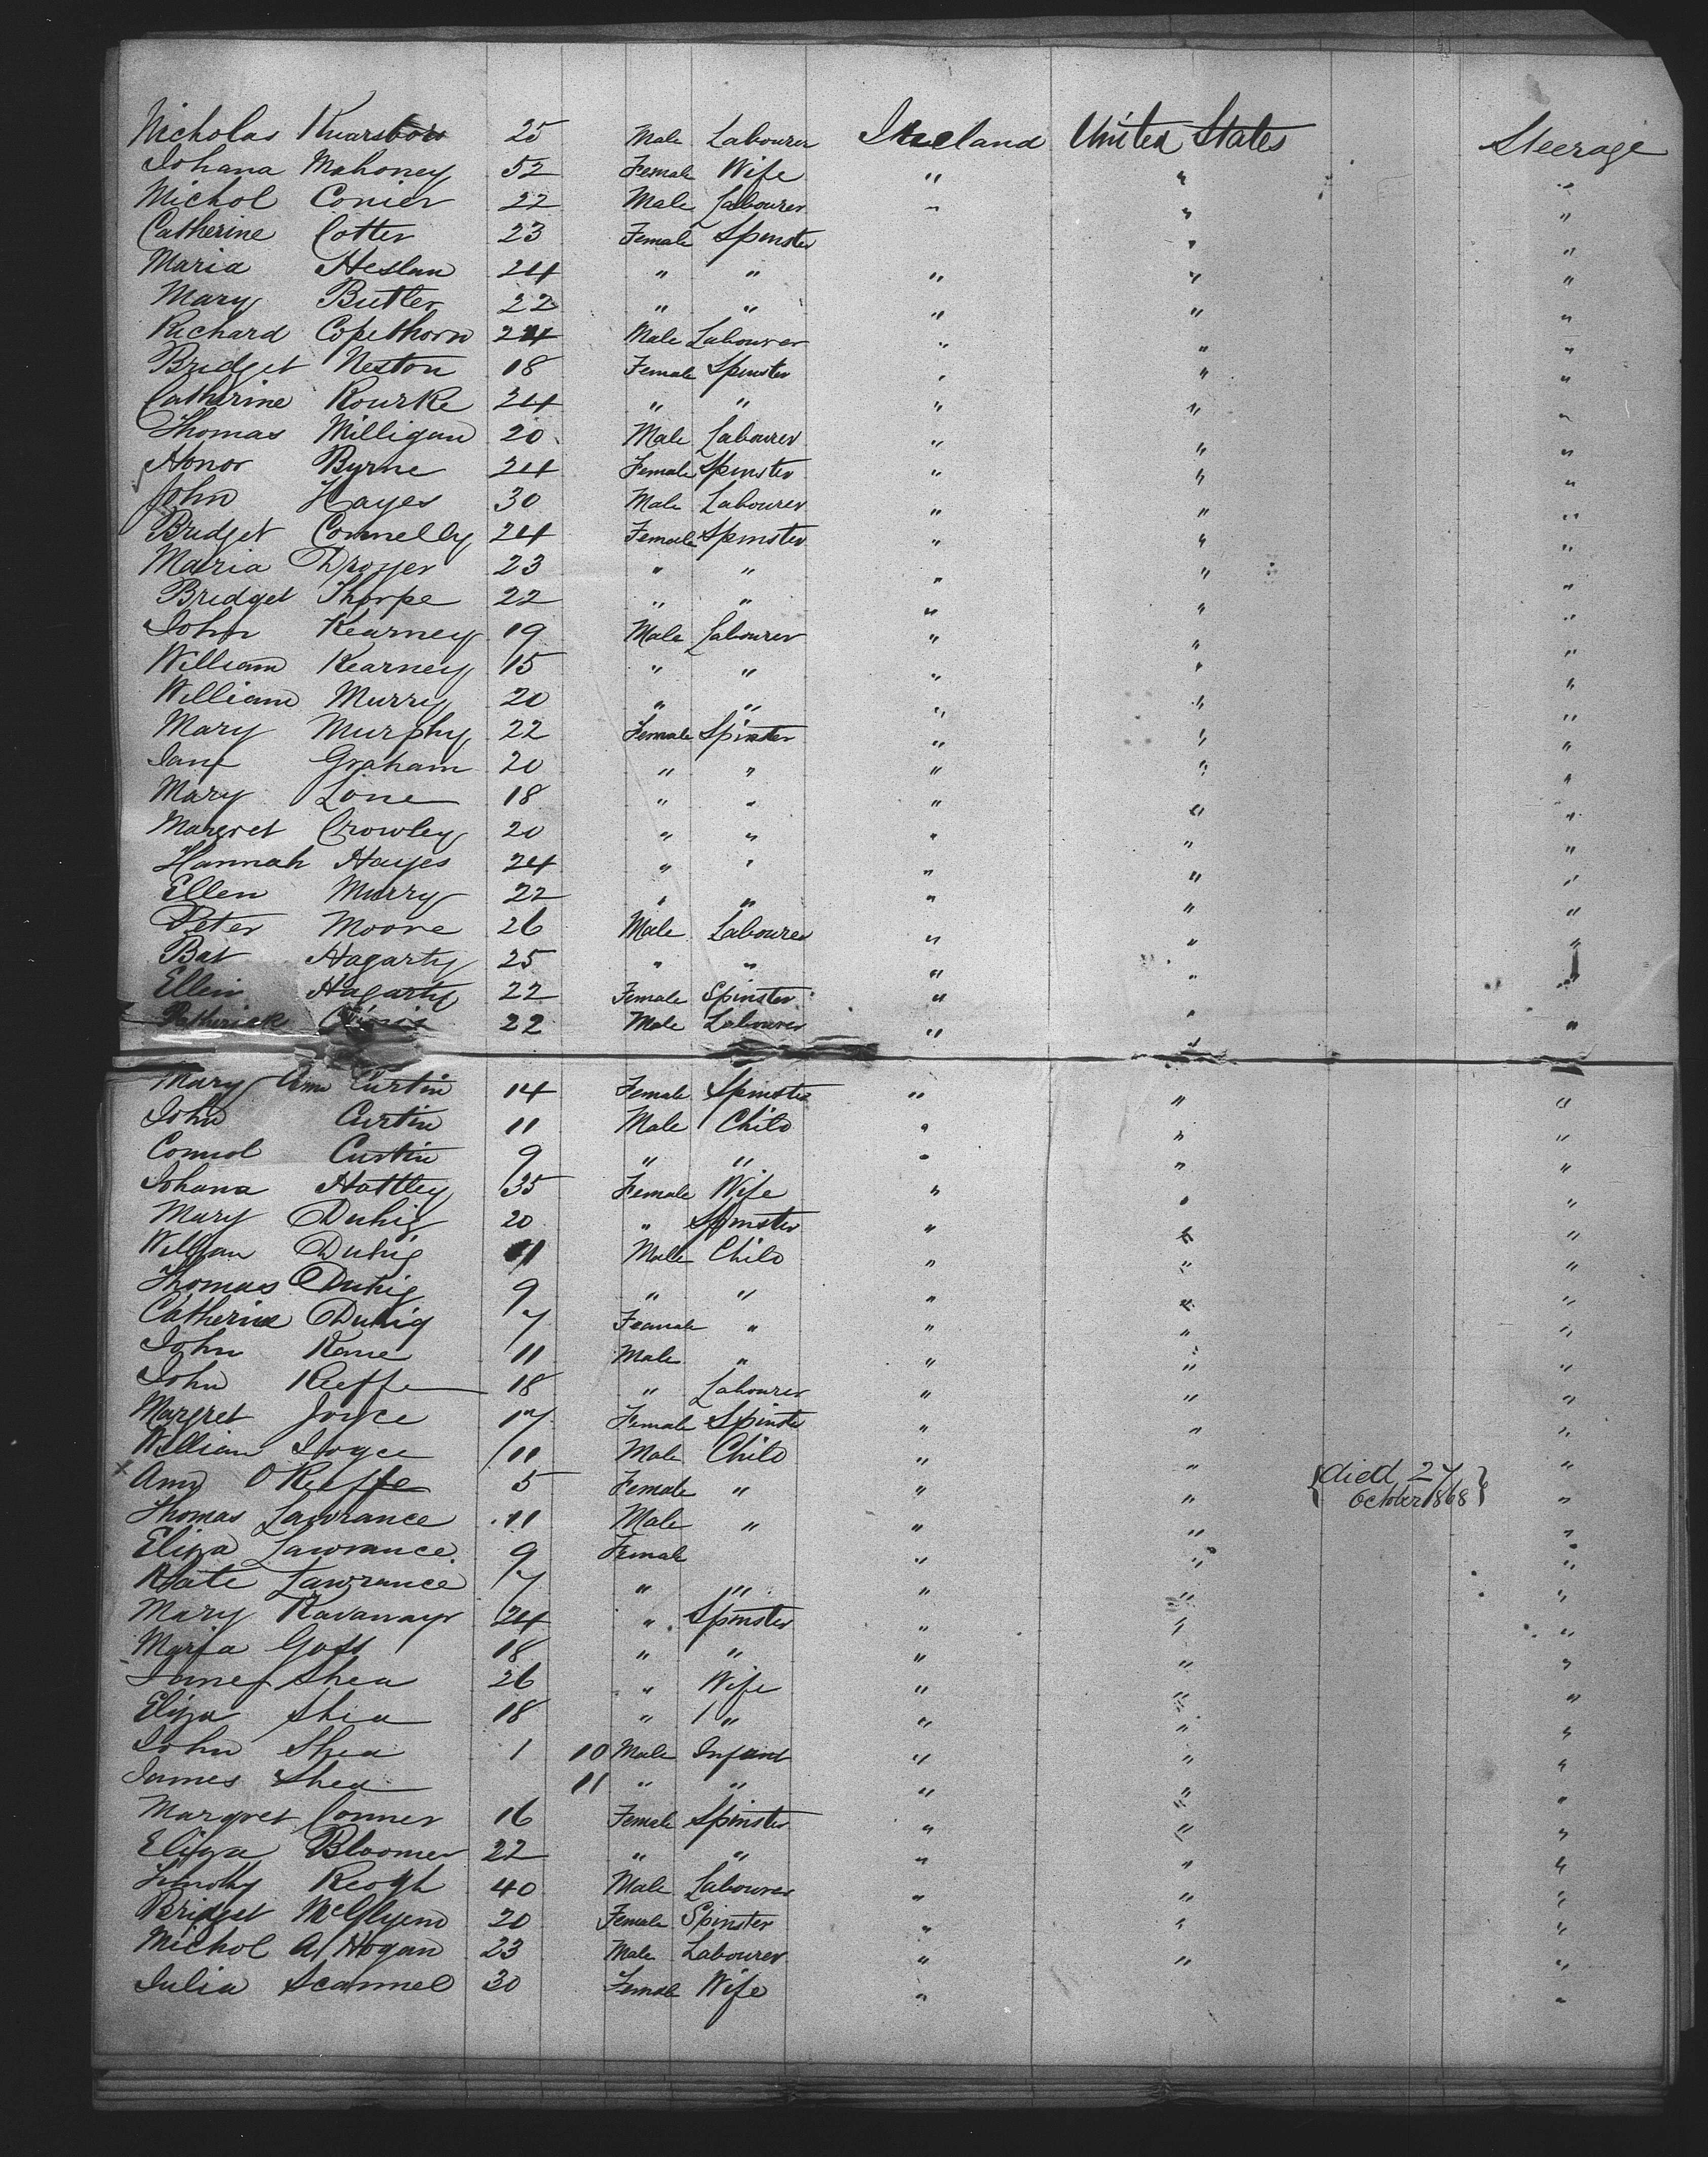 Nicholas 25 Male Labourer Ireland United States Steerage
Johana Mahoney 52 Female Wife " " "
Michol Conier 22 Male Labourer " " "
Catherine Cotter 23 Female Spinster " "
Maria Heslan 24 " " " " "
Mary Butler 22 " " " " "
Richard Copethorn 24 Male Labourer " " "
Bridget Neston 18 Female Spinster " " "
Catherine Rourke 24 " " " " "
Thomas Milligan 20 Male Labourer " " "
Honor Byrne 24 Female Spinster " " "
John Hayes 30 Male Labourer " " "
Bridget Connelly 24 Female Spinster " " "
Maria Droyer 23 " " " " "
Bridget Thorpe 22 " " " " "
John Kearney 19 Male Labourer " " "
William Kearney 15 " " " " "
William Murry 20 " " " " "
Mary Murphy 22 Female Spinster " " "
Jane Graham 20 " " " " "
Mary Lone 18 " " " " "
Margret Crowley 20 " " " " "
Hannah Hayes 24 " " " " "
Ellen Murry 22 " " " " "
Peter Moore 26 Male Labourer " " "
Bat Hagarty 25 " " " " "
Ellen Hagarty 22 Female Spinster " " "
Patherick 22 Male Labourer " " "
Mary Ann Curtin 14 Female Spinster " " "
John Curtin 11 Male Child " " "
Connol Curtin 9 " " " " "
Johana Hattley 35 Female Wife " " "
Mary Duhig 20 " Spinster " " "
William Duhig 11 Male Child " " "
Thomas Duhig 9 " " " " "
Catherine Duhig 7 Female " " " "
John Kane 11 Male " " " "
John Keeffe 18 " Labourer " " "
Margret Joyce 17 Female Spinster " " "
William Joyce 11 Male Child " " "
x Ann O Keeffe 5 Female " " " {died 27 October 1868} "
Thomas Lawrance 11 Male " " " "
Eliza Lawrance 9 Female " " "
Kate Lawrance 7 " " " " "
Mary Kavanagr 24 " Spinster " " "
Maria Goff 18 " " " " "
James Shea 26 " Wife " " "
Eliza Shea 18 " " " " "
John Shea 1 10 Male Infant " " "
James Shea 11 " " " " "
Margret Conner 16 Female Spinster " " "
Eliza Bloomer 22 " " " " "
Timothy Keogh 40 Male Labourer " " "
Bridget McGlyenn 20 Female Spinster " " "
Michol A Hogan 23 Male Labourer " " "
Julia Scannel 30 Female Wife " "